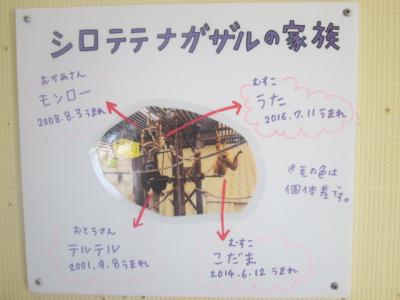 シロテテナガザルの家族
おかあさん
モンロー
2008.8.3うまれ
むすこ
うた
2016.7.11うまれ
※毛の色は
個体差です。
おとうさん
テルテル
2001.9.8うまれ
むすこ
こだま
2014.6.12うまれ